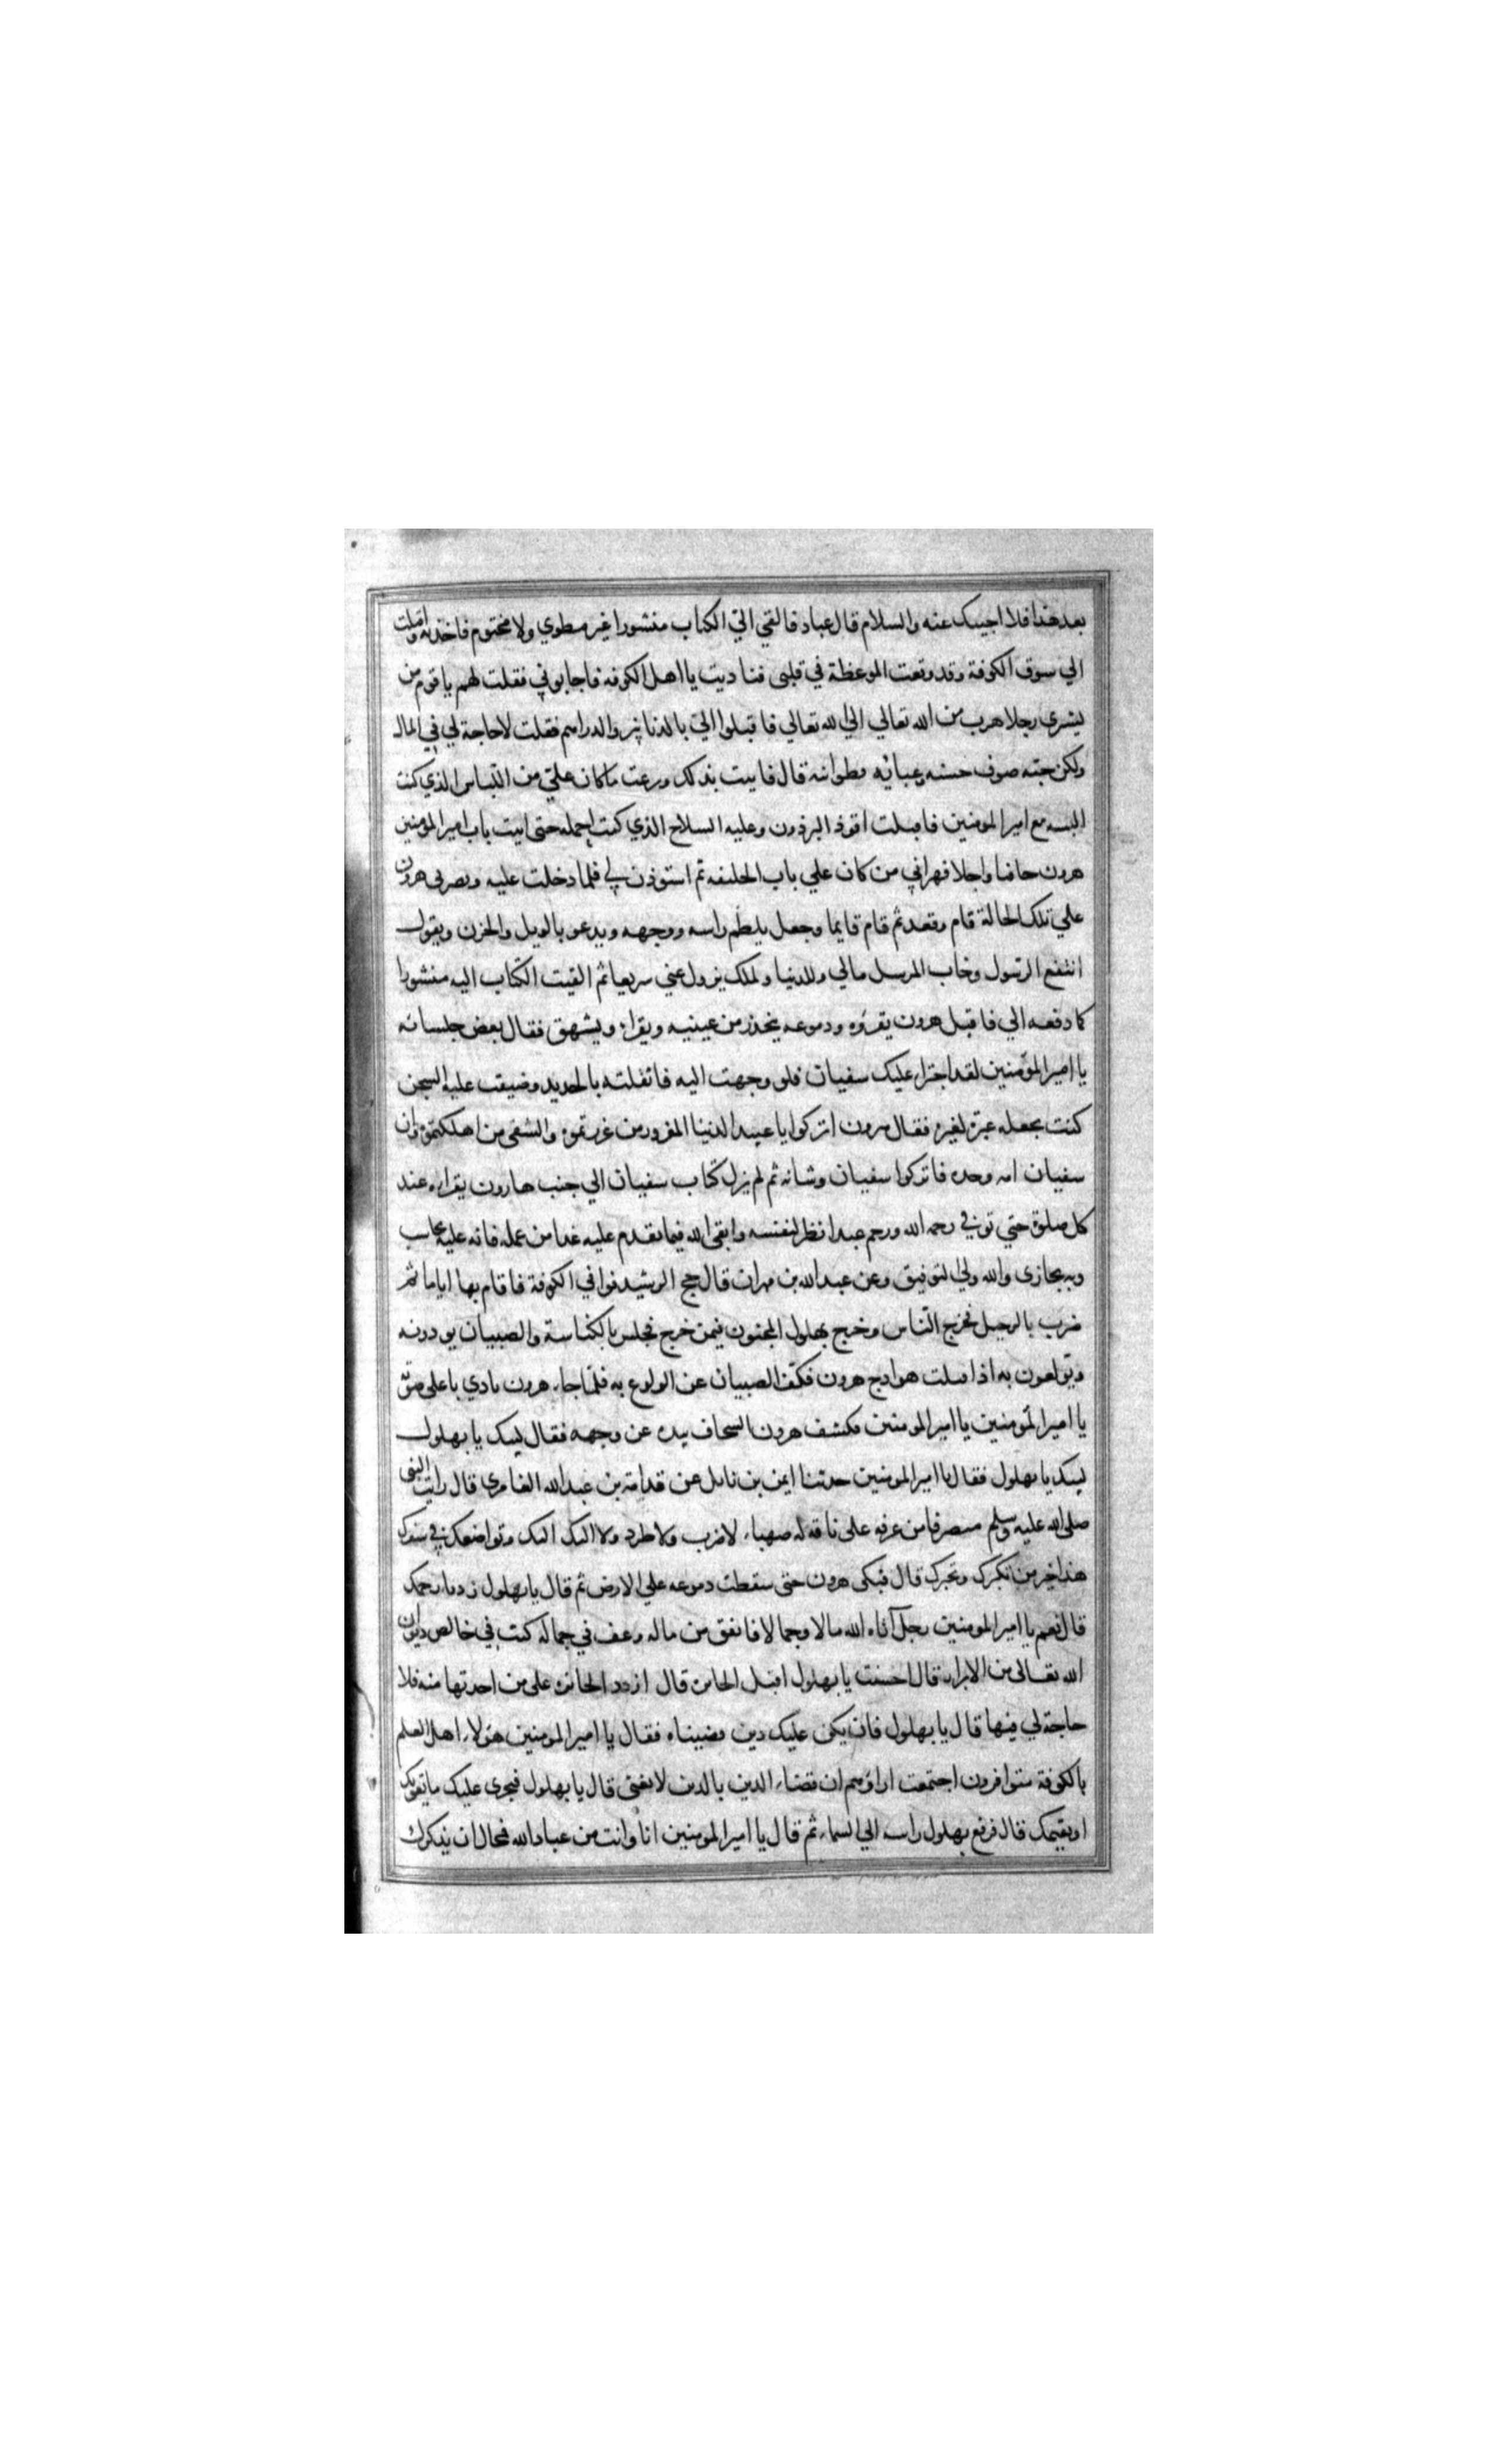 بعد هذا فلا اجيبك عنه والسلام قال عباد فالقي الي الكتاب منشورا غير مطوي ولا مختوم فاخذته واقبلت
الي سوق الكوفة وقد وقعت الموعظة في قلبى فناديت يا اهل الكوفه فاجابوني فقلت لهم يا قوم من
يشرى رجلا هرب من الله تعالي الي الله تعالي فاقبلوا الي بالدنانير والدراهم فقلت لا حاجة لي في المال
ولكن جبه صوف خشنه وعبائه قطوانيه قال فاتيت بذلك ونزعت ما كان علي من اللباس الذي كنت
البسه مع امير المومنين فاقبلت اقود البرذون وعليه السلاح الذي كنت احمله حتى اتيت باب امير المومنين
هرون حافيا راجلا فهزاني من كان علي باب الخليفه ثم استوذن لي فلما دخلت عليه وبصر بى هرون
علي تلك الحالة قام وقعد ثم قام قايما وجعل يلطم راسه ووجهه ويدعو بالويل والحزن ويقول
انتفع الرسول وخاب المرسل مالي وللدنيا ولملك يزول عني سريعا ثم القيت الكتاب اليه منشورا
كما دفعه الي فاقبل هرون يقروه ودموعه ينحدر من عينيه ويقراء ويشهق فقال بعض جلسائه
يا امير المؤمنين لقد اجتراء عليك سفيان فلو وجهت اليه فاثقلته بالحديد وضيقت عليه السجن
كنت تجعله عبرة لغيره فقال هرون اتركوا يا عبيد الدنيا المغرور من غررتموه والشقى من اهلكتموه وان
سفيان امه وحده فاتركوا سفيان وشانه ثم لم يزل كتاب سفيان الي جنب هارون يقراءه عند
كل صلوة حتي توفي رحمه الله ورحم عبدا نظر لنفسه واتقى الله فيما يقدم عليه غدا من عمله فانه عليه يحاسب
وبه يجازى والله ولي التوفيق وعن عبد الله بن مهران قال حج الرشيد فوافي الكوفة فاقام بها اياما ثم
ضرب بالرحيل فخرج الناس وخرج بهلول المجنون فيمن خرج فجلس بالكناسة والصبيان يوذونه
ويولعون به اذا اقبلت هوادج هرون فكف الصبيان عن الولوع به فلما جاء هرون نادي باعلى صوته
يا امير المؤمنين يا امير المومنين فكشف هرون السجاف بيده عن وجهه فقال لبيك يا بهلول
لبيك يا بهلول فقال يا امير المومنين حدثنا ايمن بن نايل عن قدامة بن عبد الله العامرى قال رايت النبى
صلى الله عليه وسلم منصرفا من عرفه على ناقه له صهباء لا ضرب ولا طرد ولا اليك اليك وتواضعك في سفرك
هذا خير من تكبرك وتجبرك قال فبكى هرون حتى سقطت دموعه علي الارض ثم قال يا بهلول زدنا رحمك
قال نعم يا امير المومنين رجل آتاه الله مالا وجمالا فانفق من ماله وعف في جماله كتب في خالص ديوان
الله تعالى من الابرار قال احسنت يا بهلول اقبل الجائزة قال اردد الجائزة على من اخذتها منه فلا
حاجة لي فيها قال يا بهلول فان يكن عليك دين قضيناه فقال يا امير المومنين هولاء اهل العلم
بالكوفة متوافرون اجتمعت اراؤهم ان قضاء الدين بالدين لا يغنى قال يا بهلول فنجرى عليك ما يقوتك
او يقيمك قال فرفع بهلول راسه الي السماء ثم قال يا امير المومنين انا وانت من عباد الله فمحال ان يذكرك